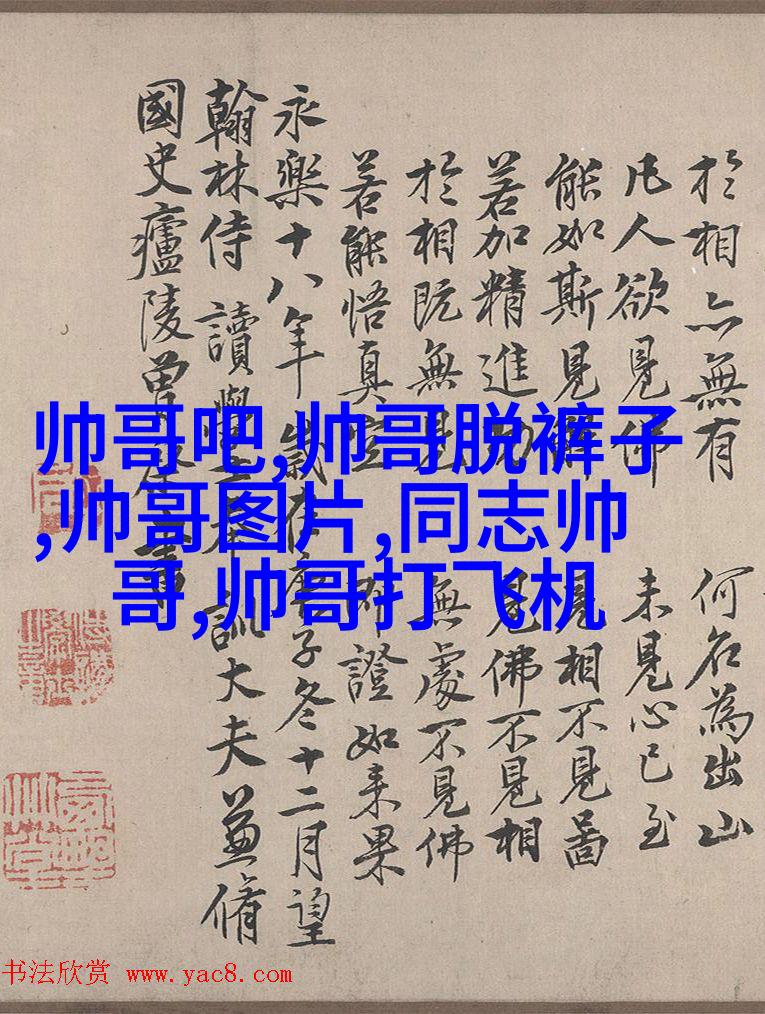 於相亦無有 何名為出山
凡人欲見佛 未見心已至
能如斯見解 見相不見啚
若加精進功 見佛不見相
於相既無見 無處不見佛
若能悟真空 即證如来果
永樂十八年歲在庚子冬十二月望
翰林侍讀學士奉訓大夫兼脩
國史廬陵曾棨書
帅哥吧,帅哥脱裤子
,帅哥图片,同志帅
哥,帅哥打飞机
书法欣赏 www.yac8.com